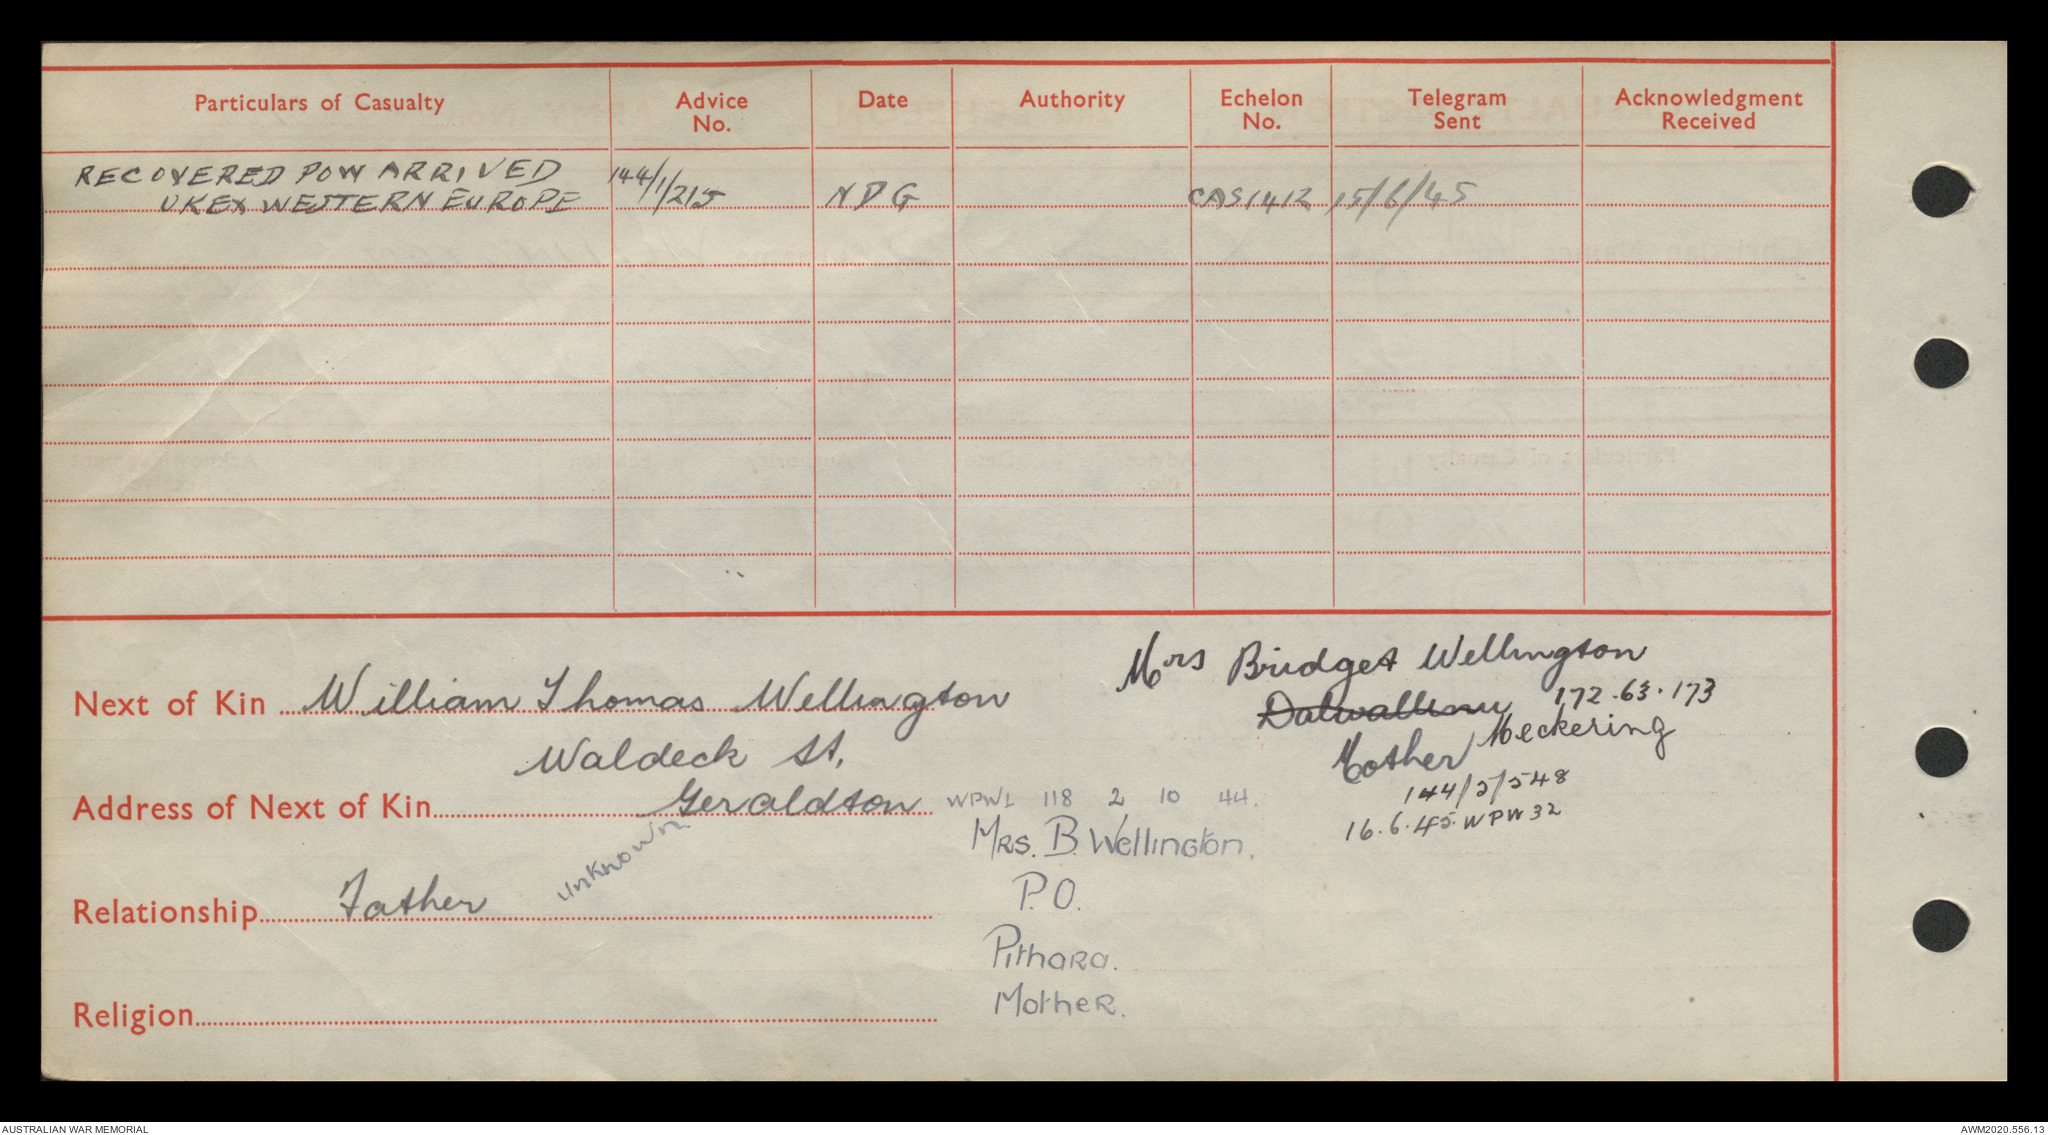 Particulars of Casualty
Advice No.
Date
Authority
Echelon No.
Telegram Sent
Acknowledgment Received
RECOVERED POW ARRIVED 144/1/215
UK EX WESTERN EUROPE NDG CAS1412 15/6/45
Mrs Bridget Wellington
Next of Kin William Thomas Wellington
Dalwallinu 172.63.173
Meckering
Mother
144/5/548
16.6.45. WPW 32
Waldeck St,
Address of Next of Kin Geraldton WPWL 118 2 10 44.
unknown
Mrs. B. Wellington.
Relationship Father
P.O.
Pithara.
Mother.
Religion
AUSTRALIAN WAR MEMORIAL
AWM2020.556.13